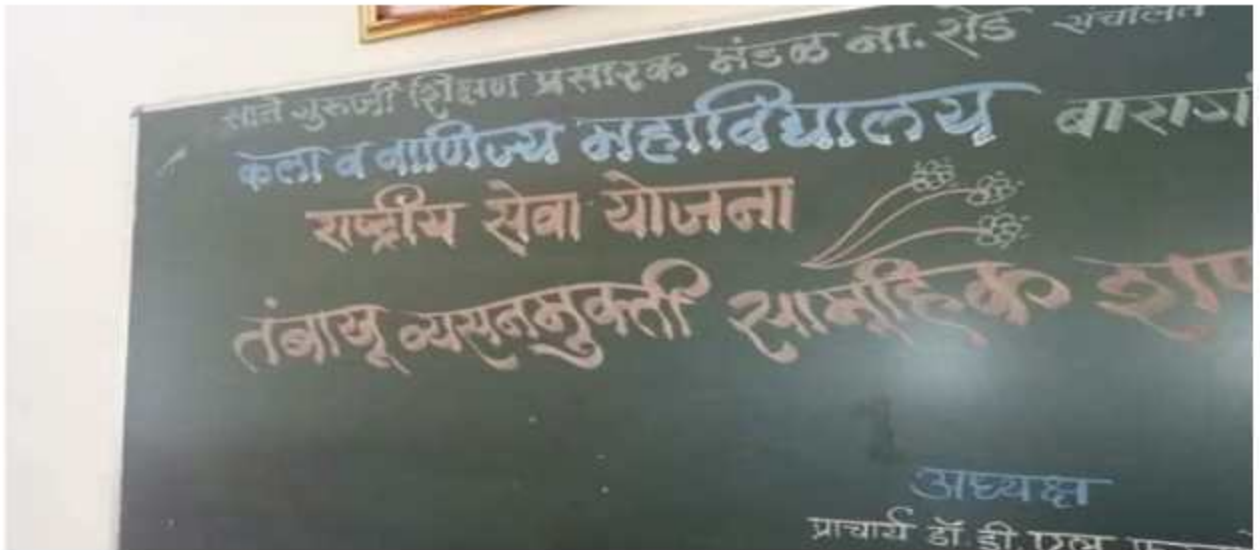 साने गुरुजी शिक्षण प्रसारक मंडळ ना. रोड संचलित
कला व वाणिज्य महाविद्यालय
राष्ट्रीय सेवा योजना
तंबाखू व्यसनमुक्ती सामूहिक
अध्यक्ष
प्राचार्य डॉ डी एल